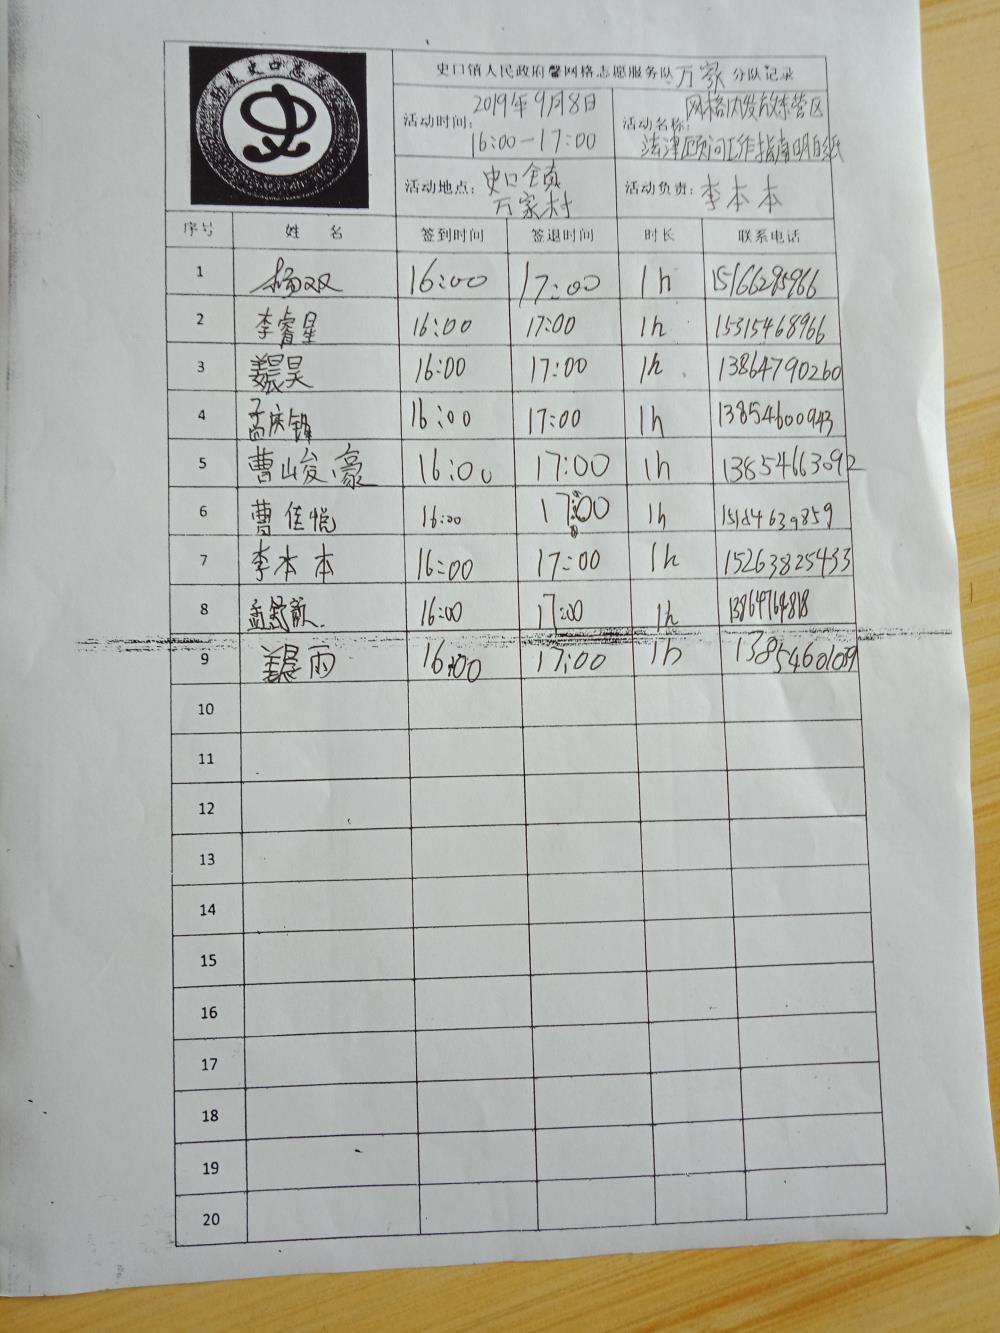 史口镇人民政府馨网格志愿服务队万家分队记录
活动时间: 2019年9月8日
16:00—17:00
活动名称: 网格内发放东营区
法律顾问工作指南明白纸
活动地点: 史口镇
万家村
活动负责: 李本本
序号 姓 名 签到时间 签退时间 时长 联系电话
1 杨双 16:00 17:00 1h 15166295966
2 李睿星 16:00 17:00 1h 15315468966
3 昊 16:00 17:00 1h 13864790260
4 16:00 17:00 1h 13854600943
5 曹峻豪 16:00 17:00 1h 13854663092
6 曹佳悦 16:00 17:00 1h
7 李本本 16:00 17:00 1h 15263825433
8 孟 16:00 17:00 1h
9 雨 16:00 17:00 1h
10
11
12
13
14
15
16
17
18
19
20